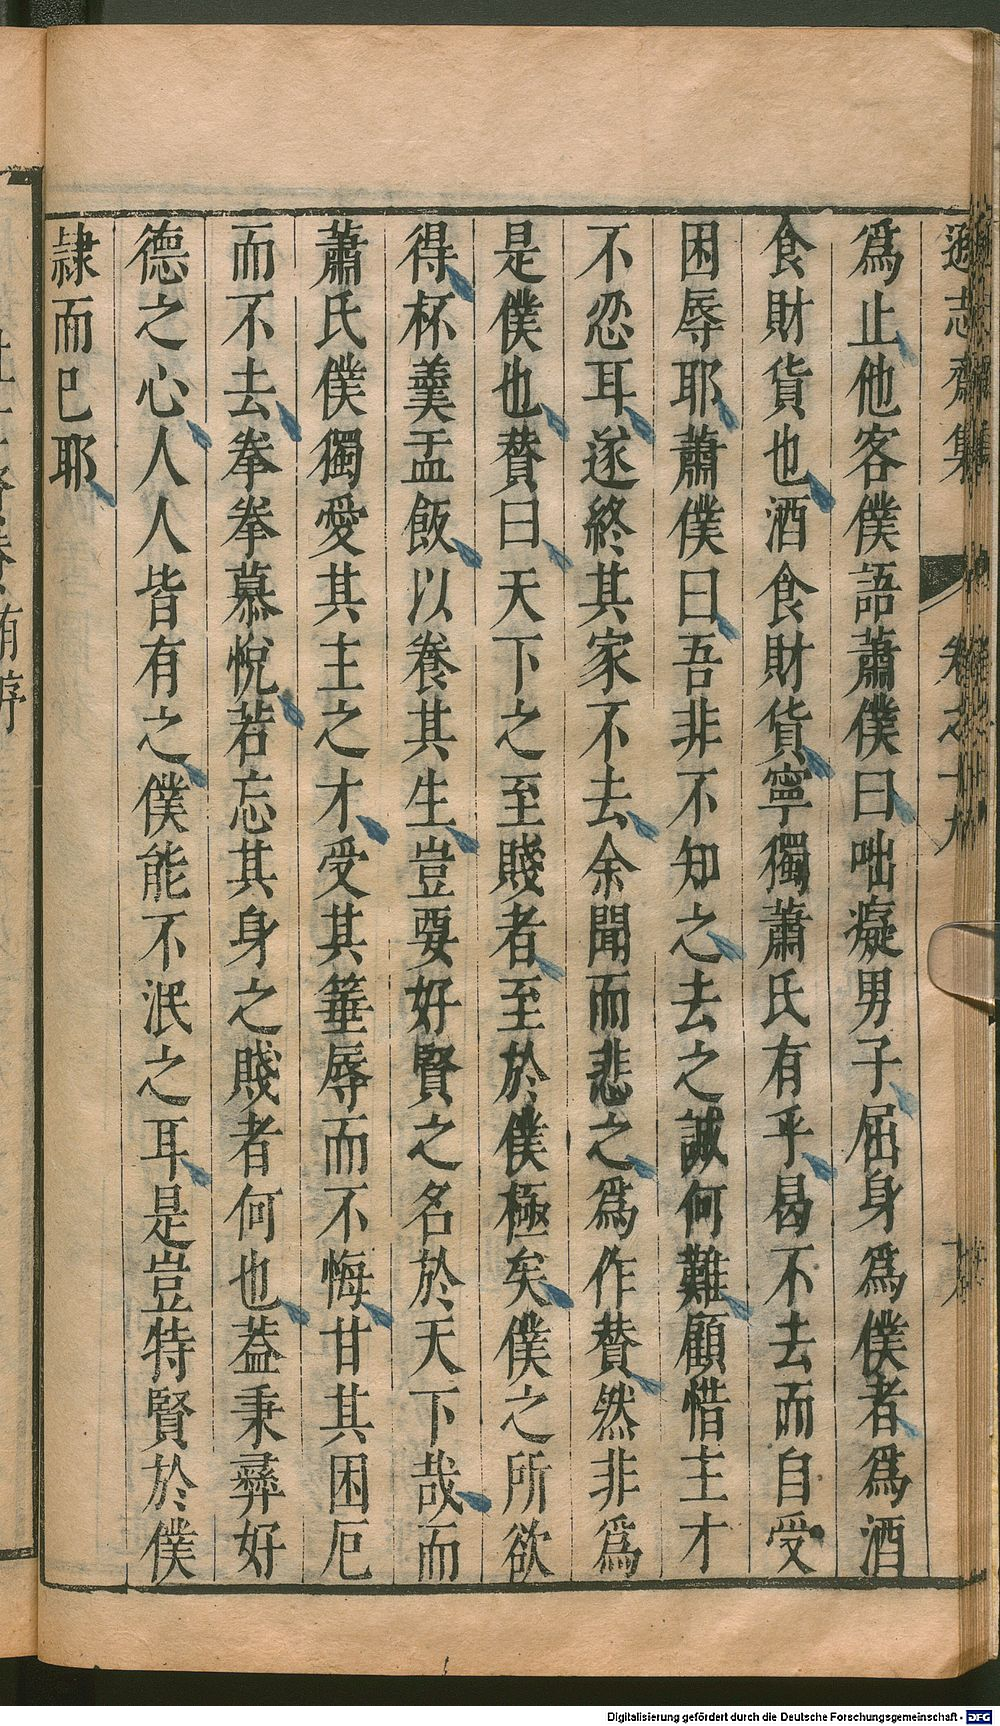 遜志齋集
卷之十九
爲止他客僕語蕭僕曰咄癡男子屈身爲僕者爲酒
食財貨也酒食財貨寧獨蕭氏有乎曷不去而自受
困辱耶蕭僕曰吾非不知之去之誠何難顧惜主才
不忍耳遂終其家不去余聞而悲之爲作贊然非爲
是僕也贊曰天下之至賤者至於僕極矣僕之所欲
得杯羹盂飯以養其生豈要好賢之名於天下哉而
蕭氏僕獨愛其主之才受其箠辱而不悔甘其困厄
而不去拳拳慕悅若忘其身之賤者何也葢秉彝好
德之心人人皆有之僕能不泯之耳是豈特賢於僕
隷而已耶
Digitalisierung gefördert durch die Deutsche Forschungsgemeinschaft - DFG